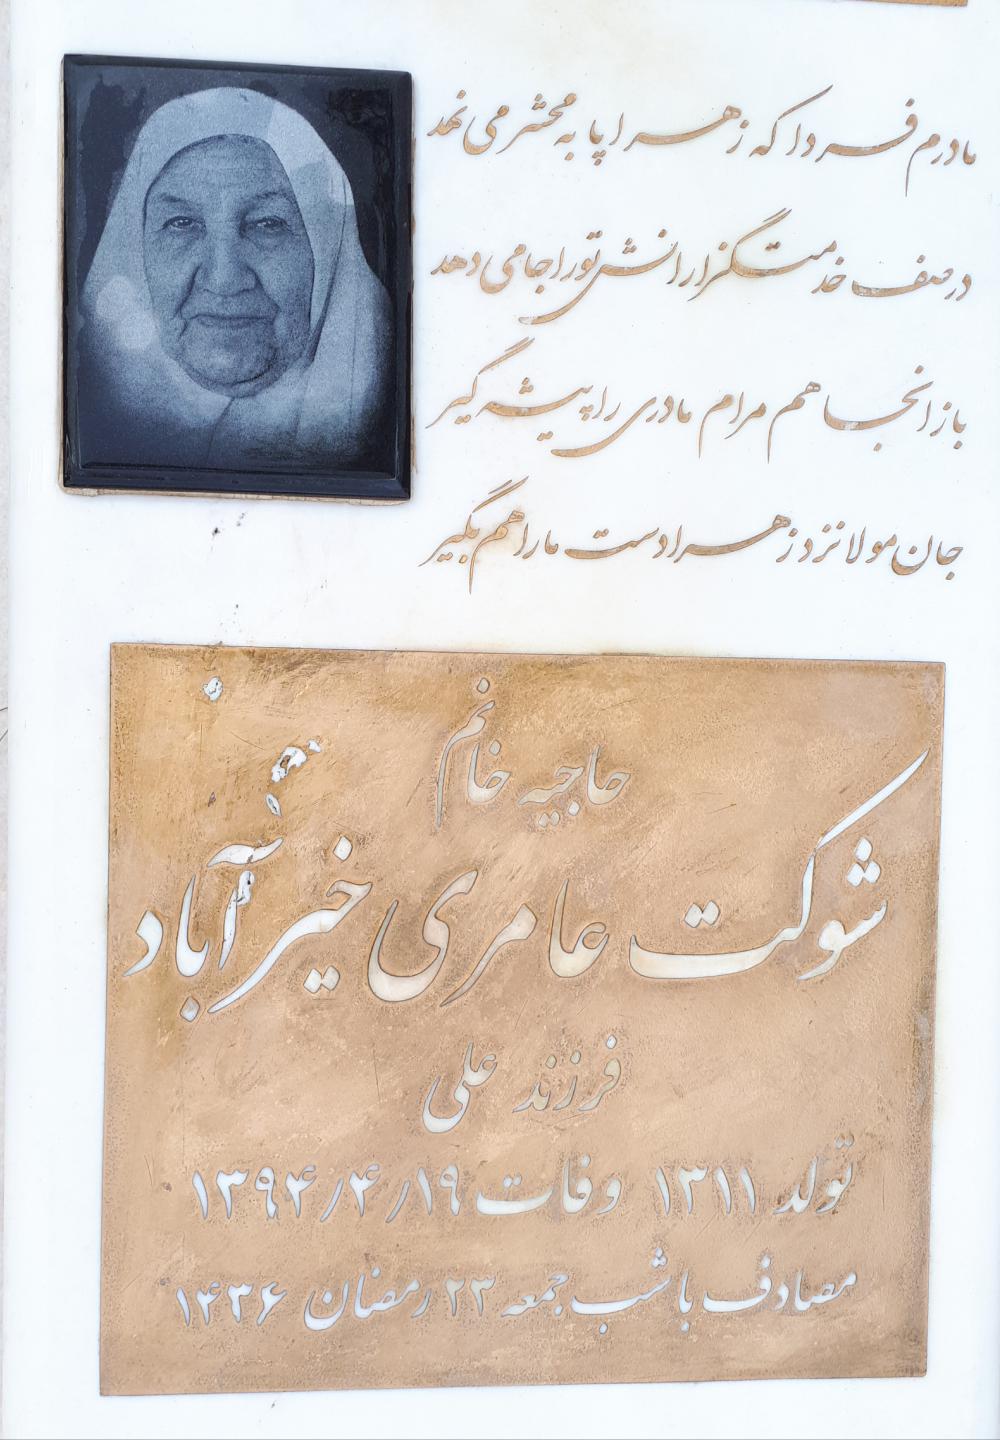 مادرم فردا که زهرا پا به محشر می نهد
در صف خدمتگزارانش تو را جا می دهد
باز انجا هم مرام مادری را پیشه گیر
جان مولا نزد زهرا دست ما را هم بگیر
حاجیه خانم
شوکت عامری خیرُآباد
فرزند علی
تولد ۱۳۱۱ وفات ۱۳۹۴/۴/۱۹
مصادف با شب جمعه ۲۳ رمضان ۱۴۳۶